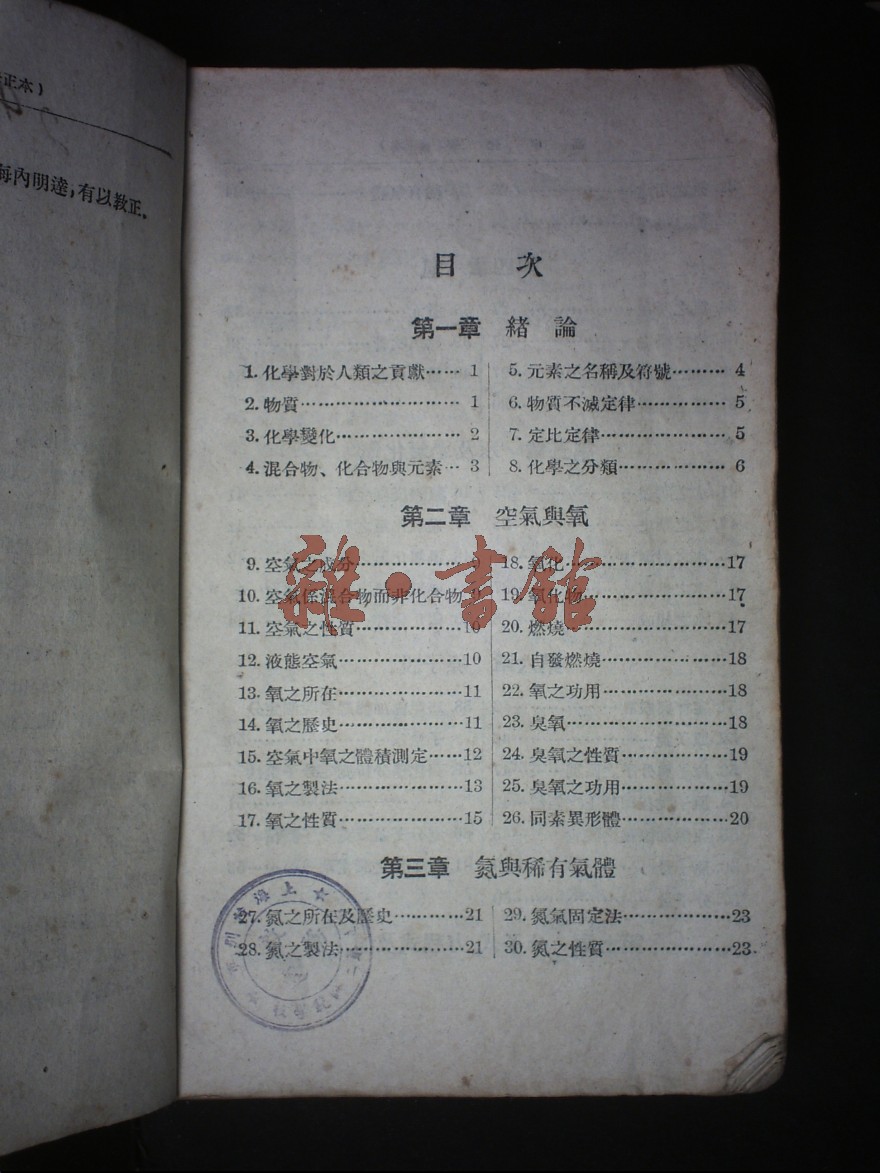 正本)
海內明達,有以敎正.
目 次
第一章 緒 論
1. 化學對於人類之貢獻…… 1
2. 物質…………………… 1
3. 化學變化……………… 2
4. 混合物、化合物與元素… 3
5. 元素之名稱及符號……… 4
6. 物質不滅定律………… 5
7. 定比定律……………… 5
8. 化學之分類…………… 6
第二章 空氣與氧
9. 空氣之成分
10. 空氣係混合物而非化合物 9
11. 空氣之性質……………10
12. 液態空氣………………10
13. 氧之所在………………11
14. 氧之歷史………………11
15. 空氣中氧之體積測定……12
16. 氧之製法………………13
17. 氧之性質………………15
18. 氧化……………………17
19. 氧化物…………………17
20. 燃燒……………………17
21. 自發燃燒………………18
22. 氧之功用………………18
23. 臭氧……………………18
24. 臭氧之性質……………19
25. 臭氧之功用……………19
26. 同素異形體……………20
第三章 氮與稀有氣體
27. 氮之所在及歷史…………21
28. 氮之製法………………21
29. 氮氣固定法……………23
30. 氮之性質………………23
雜·書館
上海